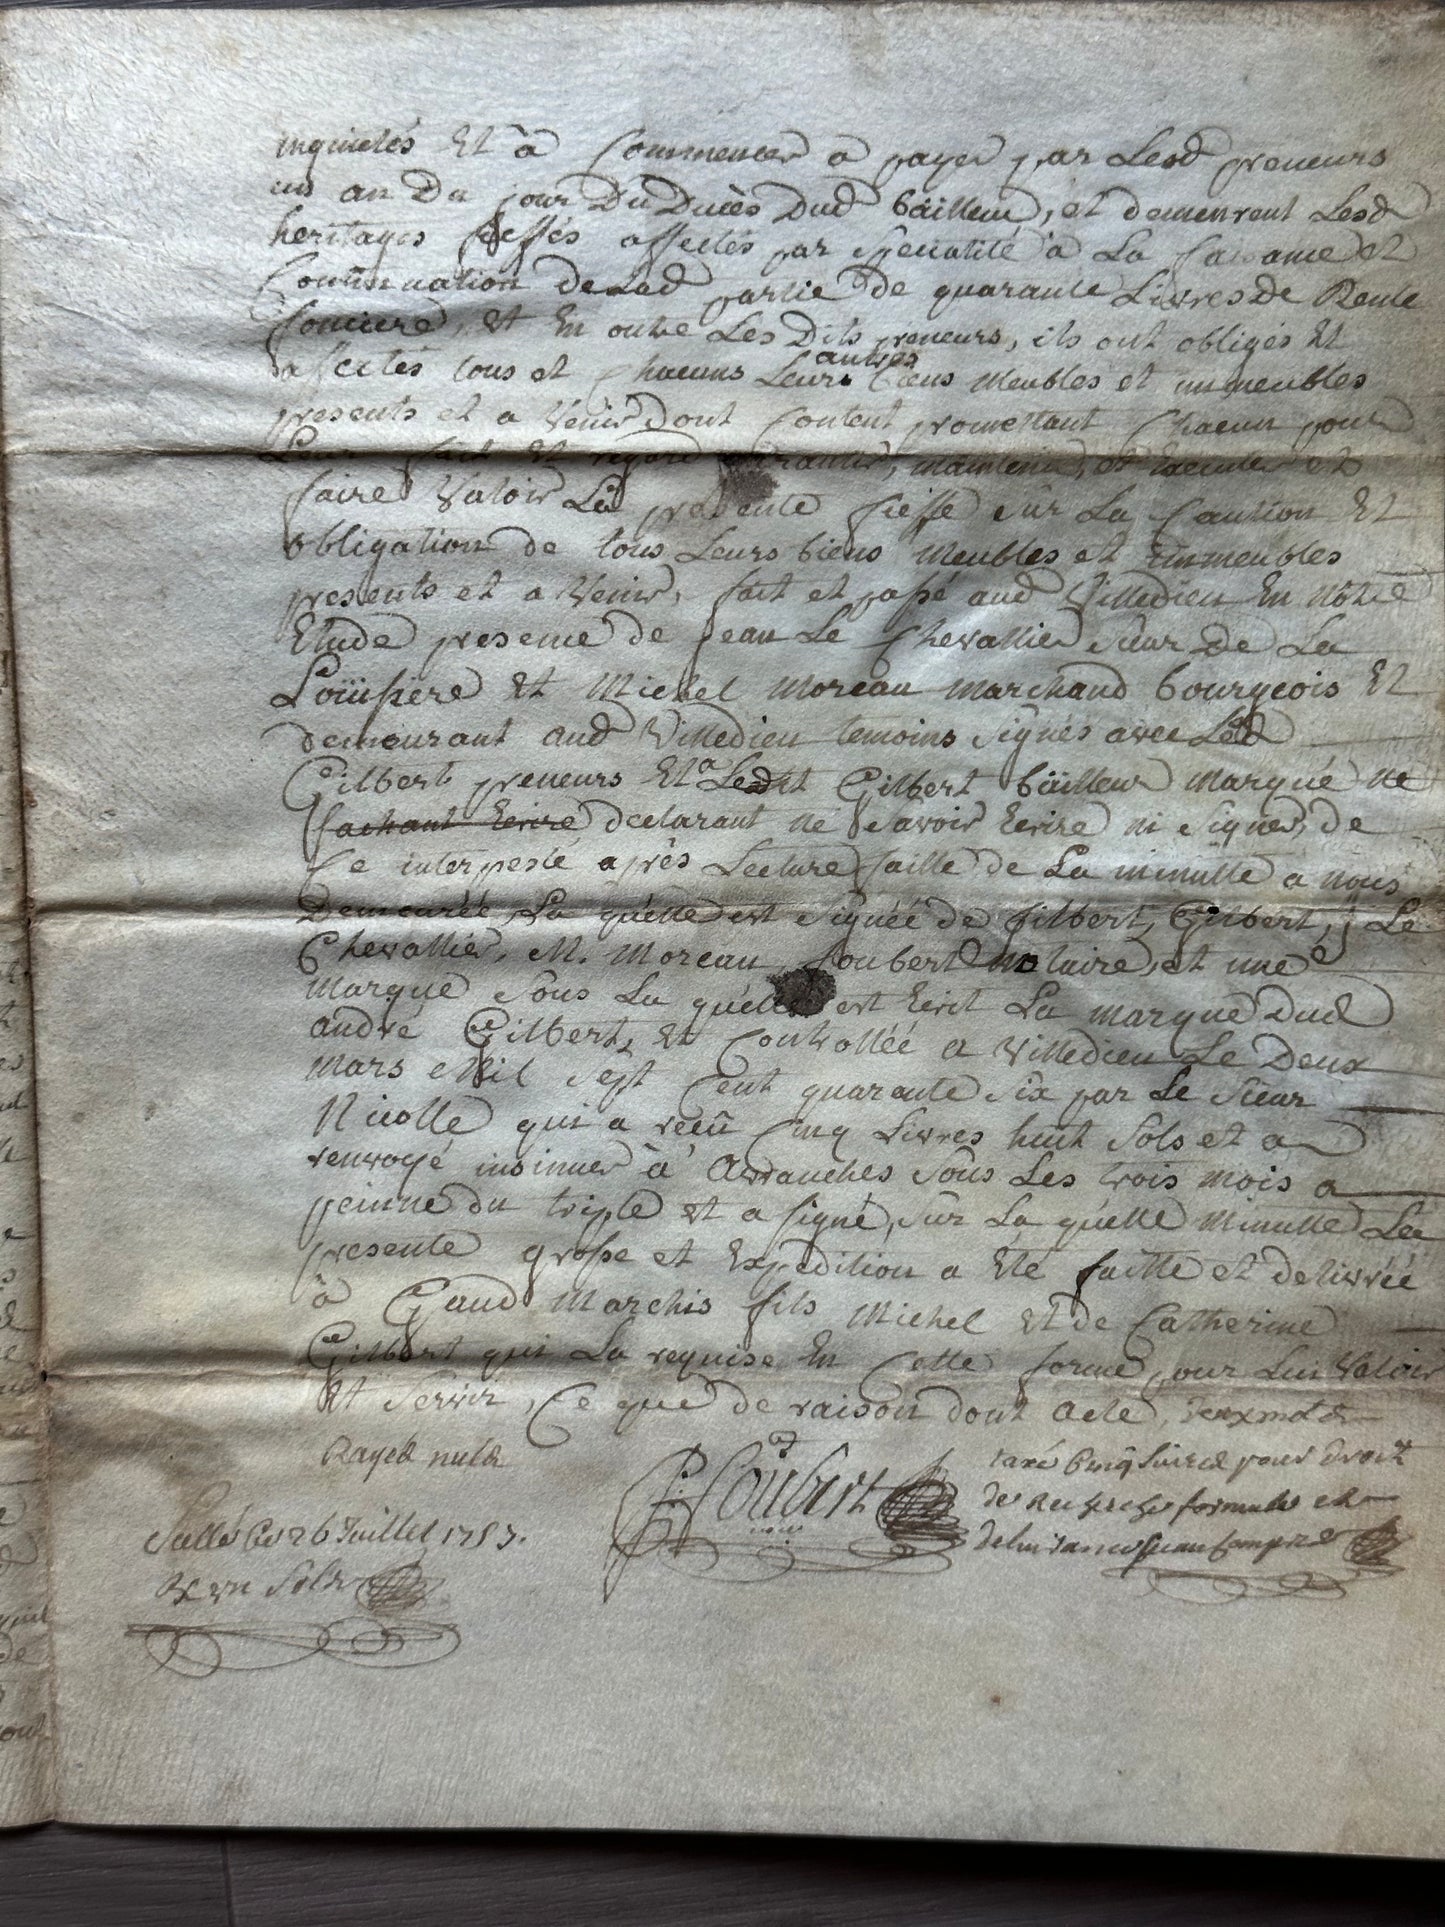 inquietés Et à Commencer a payer par Lesd preneurs
un an Du jour Du Duces Dud bailleur, et demeurent Lesd
heritages fieffés affectés par speciatité à La faisance et
Continuation de Lad partie de quarante Livres De Rente
fonciere, et En outre Les Dits preneurs, ils ont obligés Et
affectés tous et Chacuns Leurs autres biens meubles et immeubles
presents et a Venir Dont Content promettant Chacun pour
Leur fait Et regard garantir, maintenir, et Executer et
faire Valoir La presente fieffe sur La Caution Et
obligation de tous Leurs biens Meubles et immeubles
presents et a Venir, fait et passé aud Villedieu En nôtre
Etude presence de Jean Le Chevallier Sieur De La
et Michel Moreau Marchand bourgeois Et
demeurant aud Villedieu temoins signés avec Lesd
Gilbert preneurs Et a Ledt Gilbert bailleur Marqué ne
sachant Ecrire declarant ne Savoir Ecrire ni signer, de
Ce interpesté après Lecture faitte de La minutte a nous
Demeurée, La quelle est Signéé de filbert, Gilbert, J Le
Chevallier, M. Moreau Joubert Notaire, et une
marque Sous La quelle est Ecrit La marque Dud
andré Gilbert, Et Controlléé a Villedieu Le Deux
Mars Mil Sept Cent quarante six par Le Sieur
Nicolle qui a reçû Cinq Livres huit Sols et a
renvoyé insinuer à Avranches Sous Les trois mois a
peinne du triple et a signé, Sur La quelle Minutte La
presente grosse et Expedition a Eté faitte et delivréé
à Gaud Marchis fils Michel Et de Catherine
Gilbert qui La requise En Cette forme pour Lui Valoir
Et Servir, Ce que de raison dont Acte, deux mots
Rayés nuls
Joubert
taxé Cinq Livres pour droit
de Recherche formule et
delivrance Jean Compris
Sallé Ce 26 Juillet 1757.
Rx un Sols